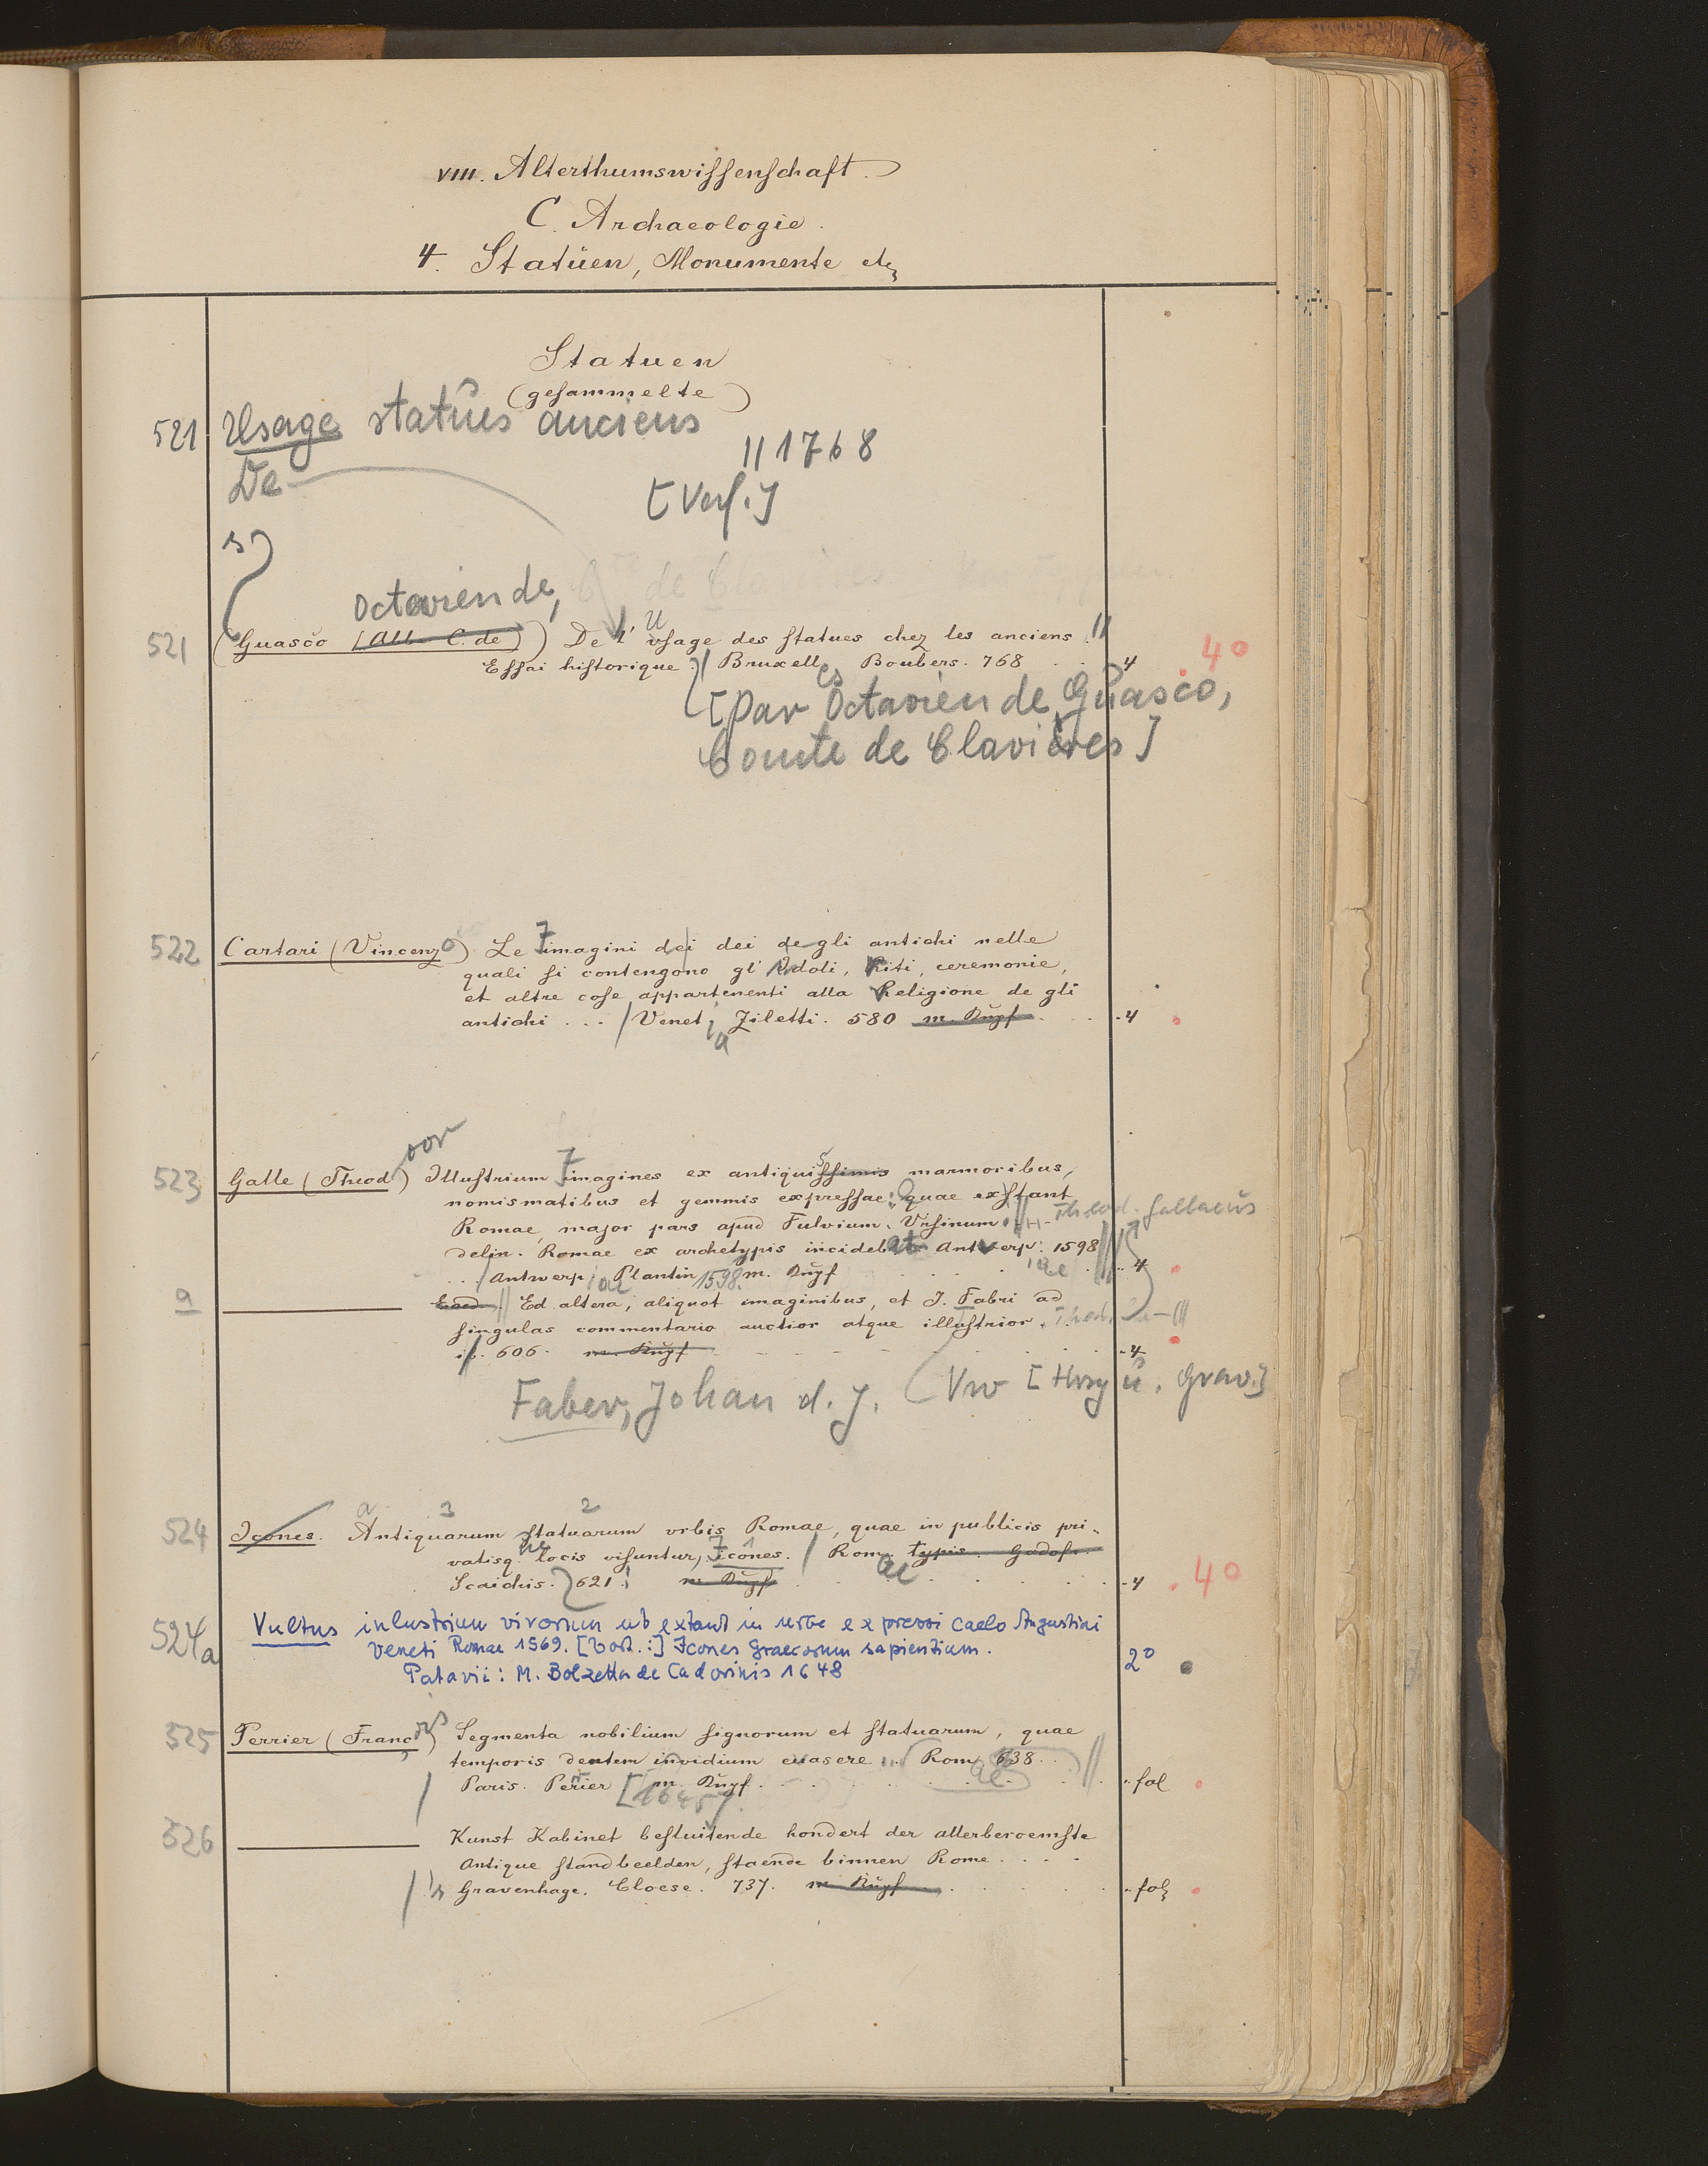 VIII. Alterthumswissenschaft.
C. Archaeologie.
4. Statuen, Monumente etc
Statuen
(gesammelte)
521 Usage statues anciens
|| 1768
De
[Verf.]
s
Octavien de,
521 (Guasco (Alb. C. de)) De l' Usage des statues chez les anciens. ||
Essai historique. | Bruxelles Boubers. 768 . . 4 40
[par Octavien de Guasco,
Comte de Clavières]
522 Cartari (Vincenzo) Le Imagini dei dei de gli antichi nelle
quali si contengono gl' Idoli, Riti, ceremonie,
et altre cose appartenenti alla Religione de gli
antichi . . . / Venet. Ziletti. 580 m. Kupf . . . 4
a
oor
523 Galle (Theod) Illustrium Imagines ex antiquissimis marmoribus,
nomismatibus et gemmis expressae: quae exstant
Romae, major pars apud Fulvium Ursinum. Theod. Gallaeus
delin. Romae ex archetypis incidebat Antverp. 1598
. . . Antwerp. ae Plantin 1598. m. Kupf . . . 4
a Ead. || Ed altera, aliquot imaginibus, et J. Fabri ad
singulas commentario auctior atque illustrior.
ib. 606. m. Kupf . . . 4
Faber, Johan d. J. (Vw [Hrsg u. Grav.]
a 3 2
524 Icones. Antiquarum statuarum urbis Romae, quae in publicis pri-
vatisq. locis visuntur, Icones. / Rom. typis. Godofr.
Scaichis. 621. m. Kupf . . . 4 40
524a Vultus inlustrium virorum ut extant in urbe expressi caelo Augustini
Veneti Romae 1569. [Vort.:] Icones Graecorum sapientium.
Patavii: M. Bolzetta de Cadorinis 1648 2°
525 Perrier (Franç) Segmenta nobilium signorum et statuarum, quae
temporis dentem invidium evasere . . . Rom. 638. .
Paris. Perier [1645] m. Kupf . . . fol
526 Kunst Kabinet besluitende hondert der allerberoemste
Antique standbeelden, staende binnen Rome . . . .
/ 's Gravenhage. Cloese. 737. m. Kupf . . . fol